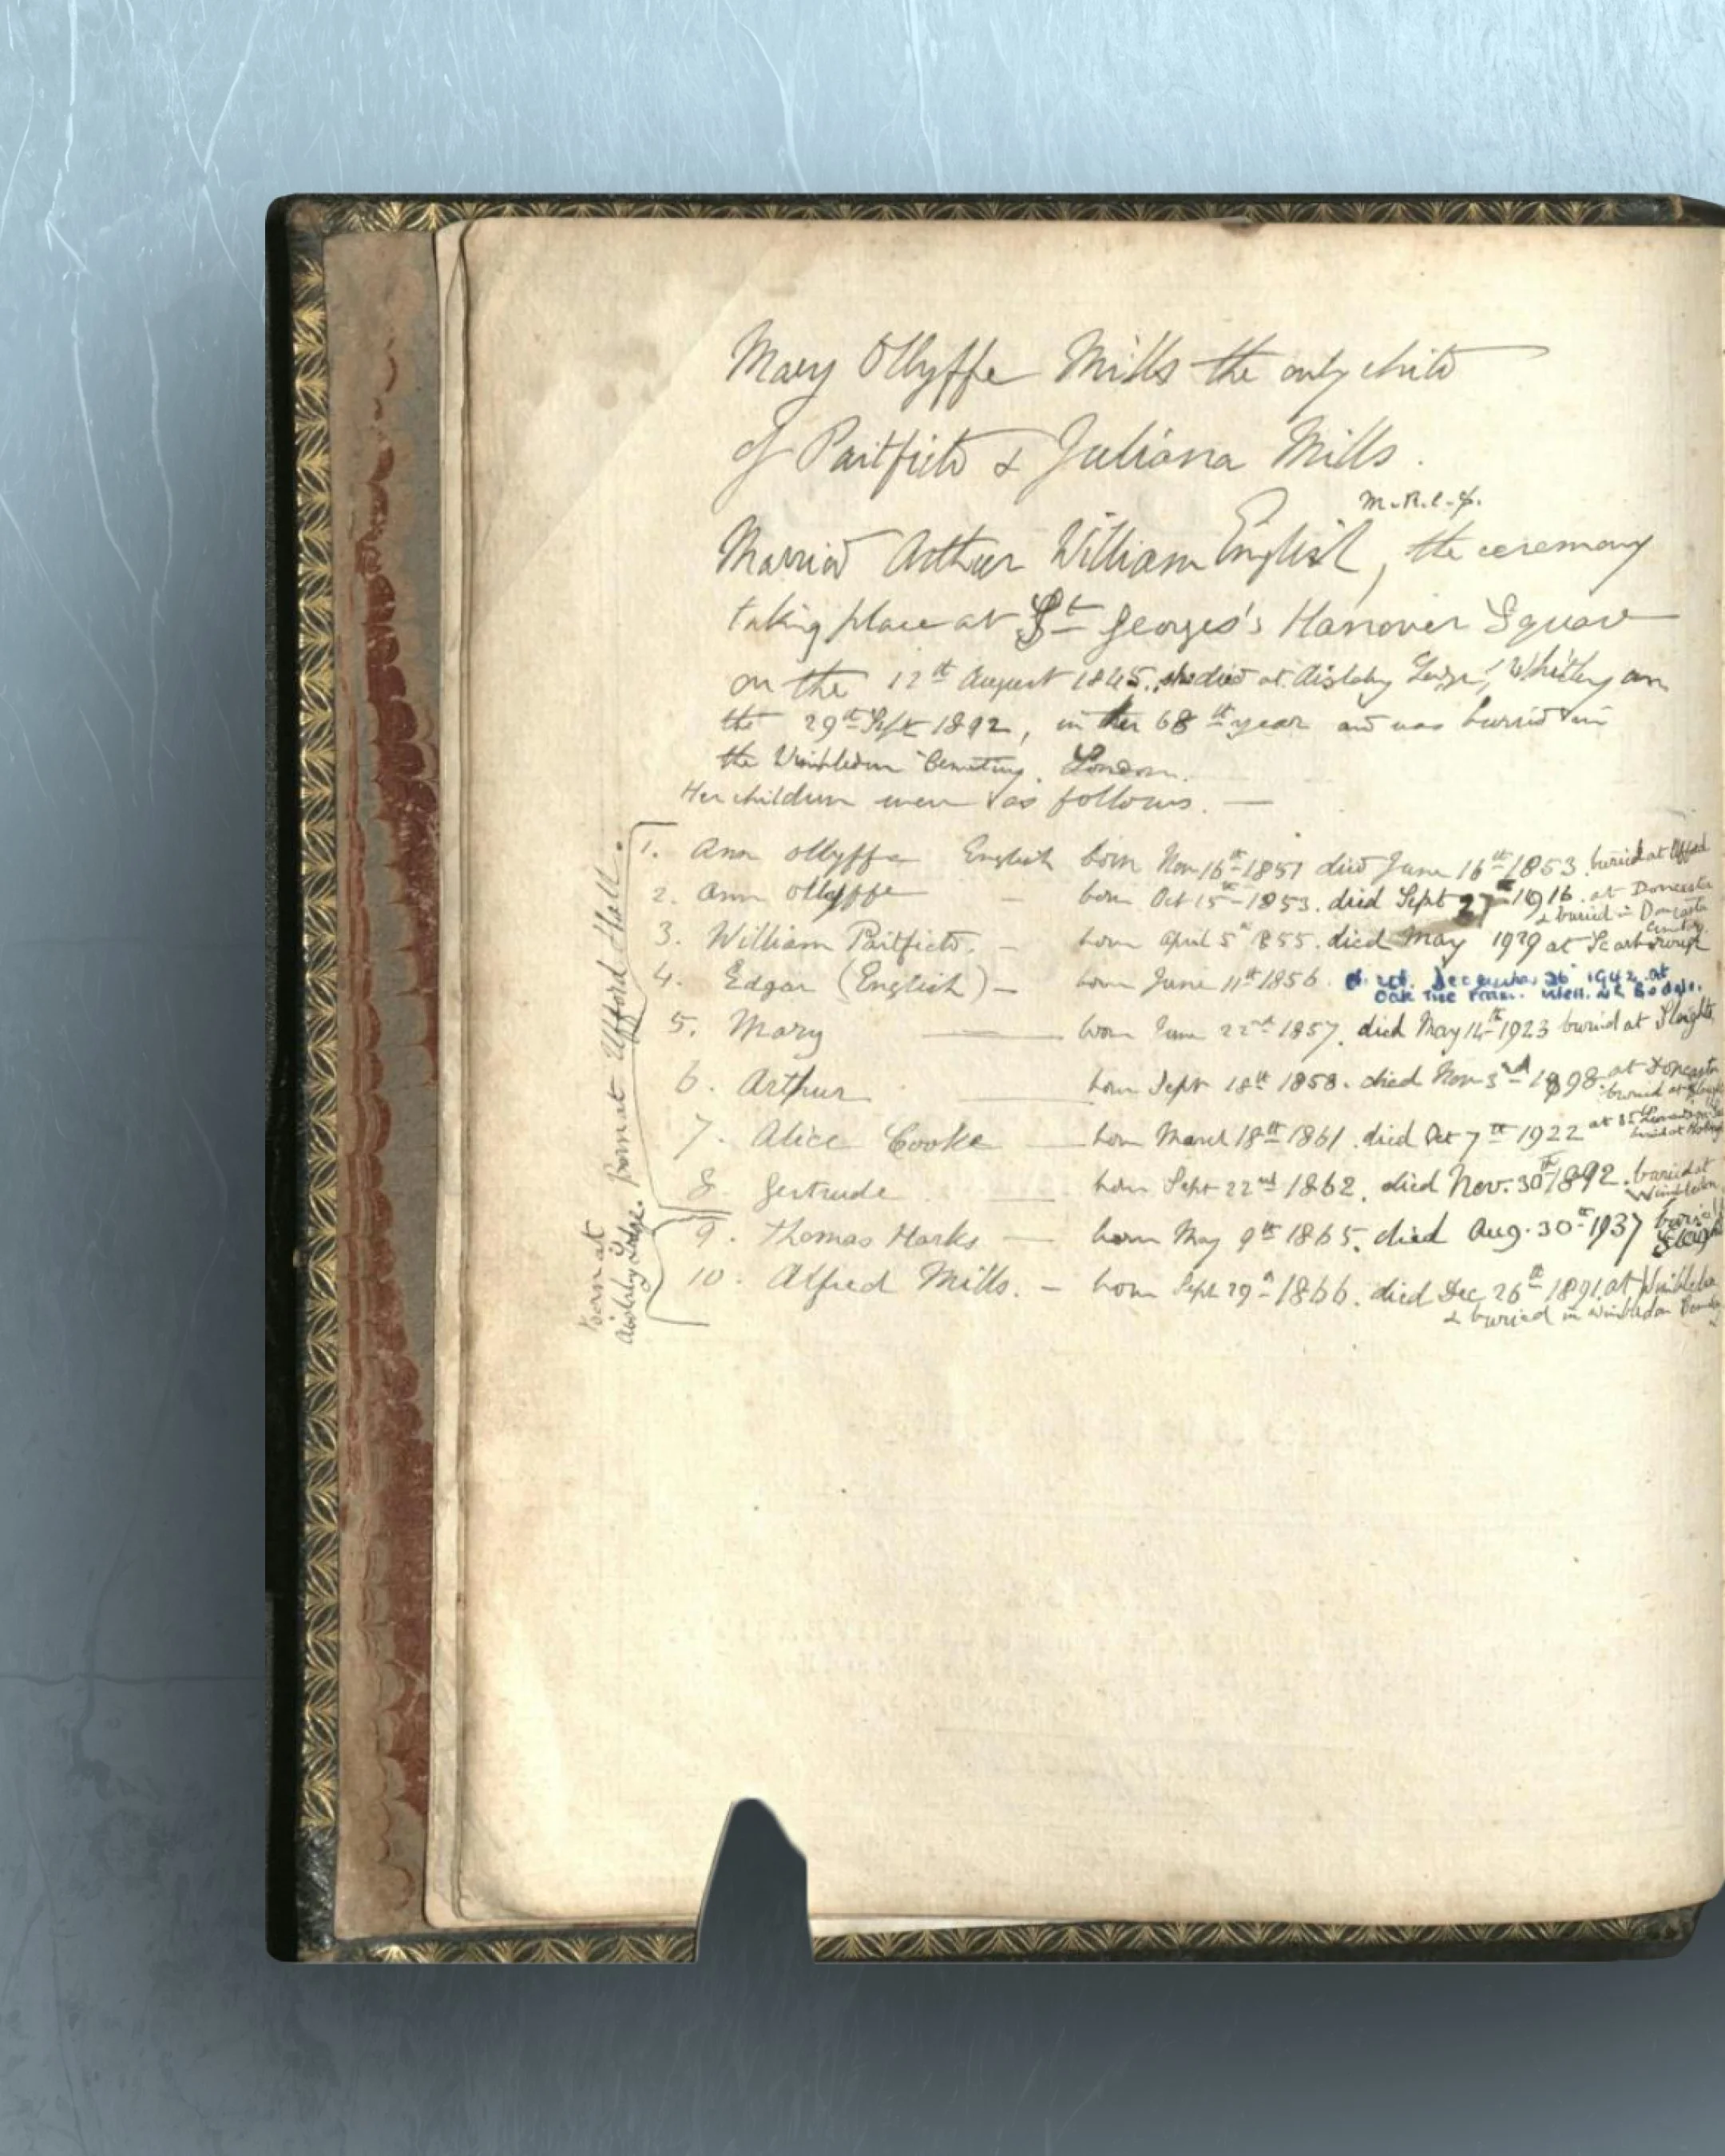 Mary Ollyffe Mills the only child
of Partfield & Juliana Mills.
M.R.C.S.
Married Arthur William English, the ceremony
taking place at St. Georges's Hanover Square
on the 12th August 1845, she died at Aislaby Lodge, Whitby on
the 29th Sept 1892, in her 68th year and was buried in
the Wimbledon Cemetery. London.
Her children were as follows. —
1. Ann Ollyffe English born Nov 16th 1851 died June 16th 1853. buried at Ufford
2. Ann Ollyffe - born Oct 15th 1853. died Sept 27th 1916. at Doncaster
& buried in Doncaster
Cemetery.
3. William Partfield. - born April 5th 1855. died May 1929 at Scarborough
4. Edgar (English) - born June 11th 1856. December 26 1942. at
Oak Tree Farm. Nr Bedale.
5. Mary — born June 22nd 1857. died May 14th 1923 buried at Sleights
6. Arthur — born Sept 18th 1858. died Nov 3rd 1898. at Doncaster
buried at
7. Alice Cooke — born March 18th 1861. died Oct 7th 1922 at 35
8. Gertrude — born Sept 22nd 1862. died Nov. 30th 1892. buried at
Wimbledon
9. Thomas Harks — born May 9th 1865. died Aug. 30th 1937 buried
Sleights
10. Alfred Mills. - born Sept 29th 1866. died Dec 26th 1891. at Wimbledon
& buried in Wimbledon
Born at Ufford Hall.
Born at
Aislaby Lodge.